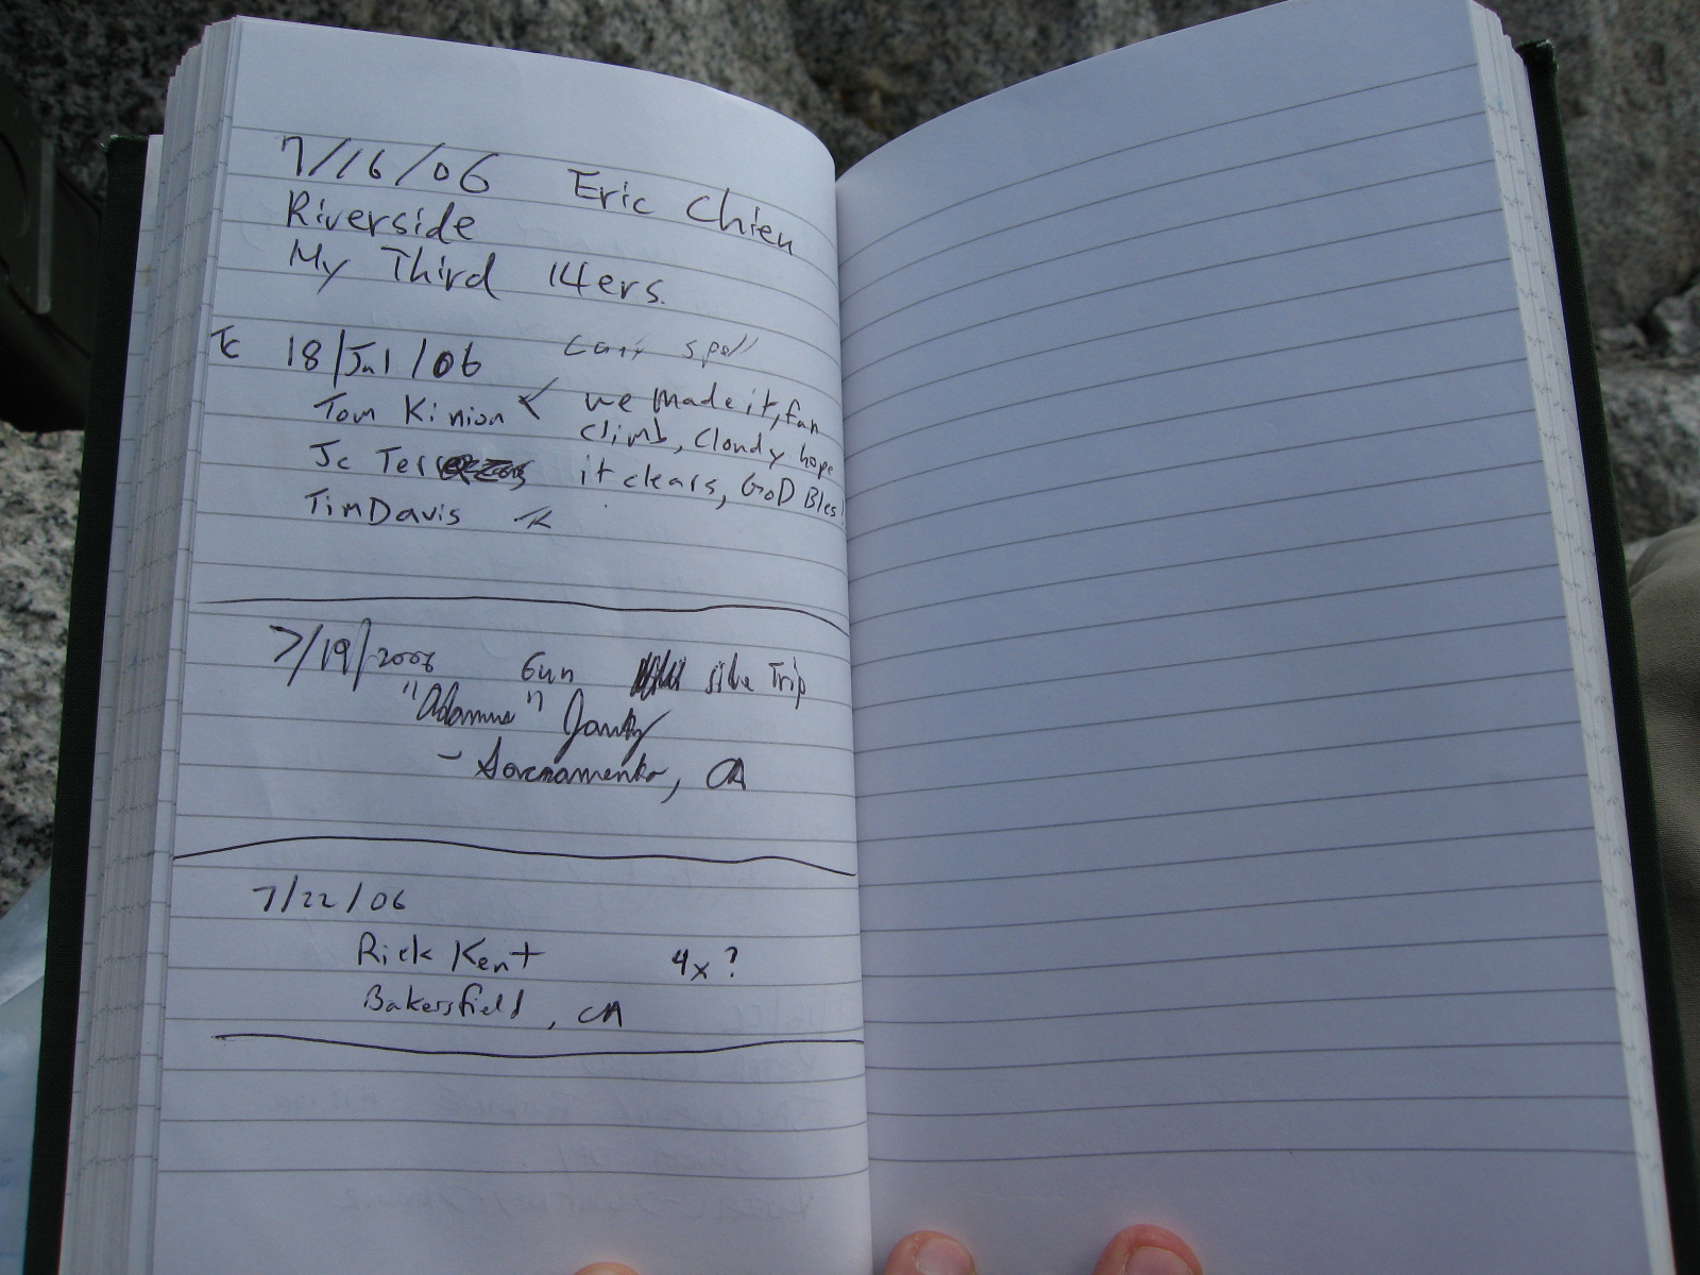 7/16/06 Eric Chien
Riverside
My Third 14ers.
Tc 18/Jul/06 can't spell
Tom Kinion we made it, fun
climb, cloudy hope
Jc it clears, GOD Bless
Tim Davis
7/19/2006 side Trip
- Sacramento, CA
7/22/06
Rick Kent 4x?
Bakersfield, CA